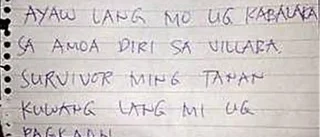 AYAW LANG MO UG KABALAKA
SA AMOA DIRI SA VILLABA.
SURVIVOR MING TANAN
KUWANG LANG MI UG
PAGKAON